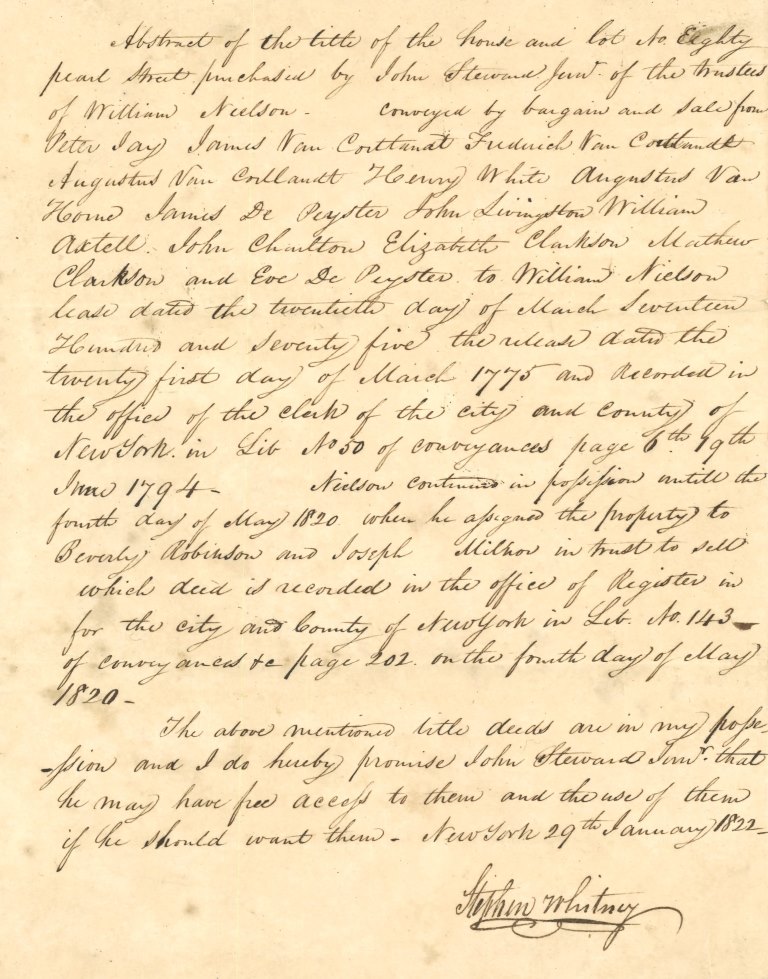 Abstract of the title of the house and lot No. Eighty
pearl street purchased by John Steward Junr. of the trustees
of William Nielson - conveyed by bargain and sale from
Peter Jay James Van Cortlandt Frederich Van Cortlandt
Augustus Van Cortlandt Henry White Augustus Van
Horne James De Peyster John Livingston William
Axtell. John Charlton Elizabeth Clarkson Mathew
Clarkson and Eve De Peyster to William Nielson
lease dated the twentieth day of March Seventeen
Hundred and Seventy five the release dated the
twenty first day of March 1775 and Recorded in
the office of the clerk of the city and county of
New York. in Lib No 50 of conveyances page 6th 19th
June 1794 - Nielson continued in possession untill the
fourth day of May 1820 when he assigned the property to
Beverly Robinson and Joseph in trust to sell
which deed is recorded in the office of Register in
for the city and County of New York in Lib. No. 143 -
of conveyances &c page 202. on the fourth day of May
1820 -
The above mentioned title deeds are in my posse-
-ssion and I do hereby promise John Steward Junr. that
he may have free access to them and the use of them
if he should want them - New York 29th January 1822 -
Stephen Whitney